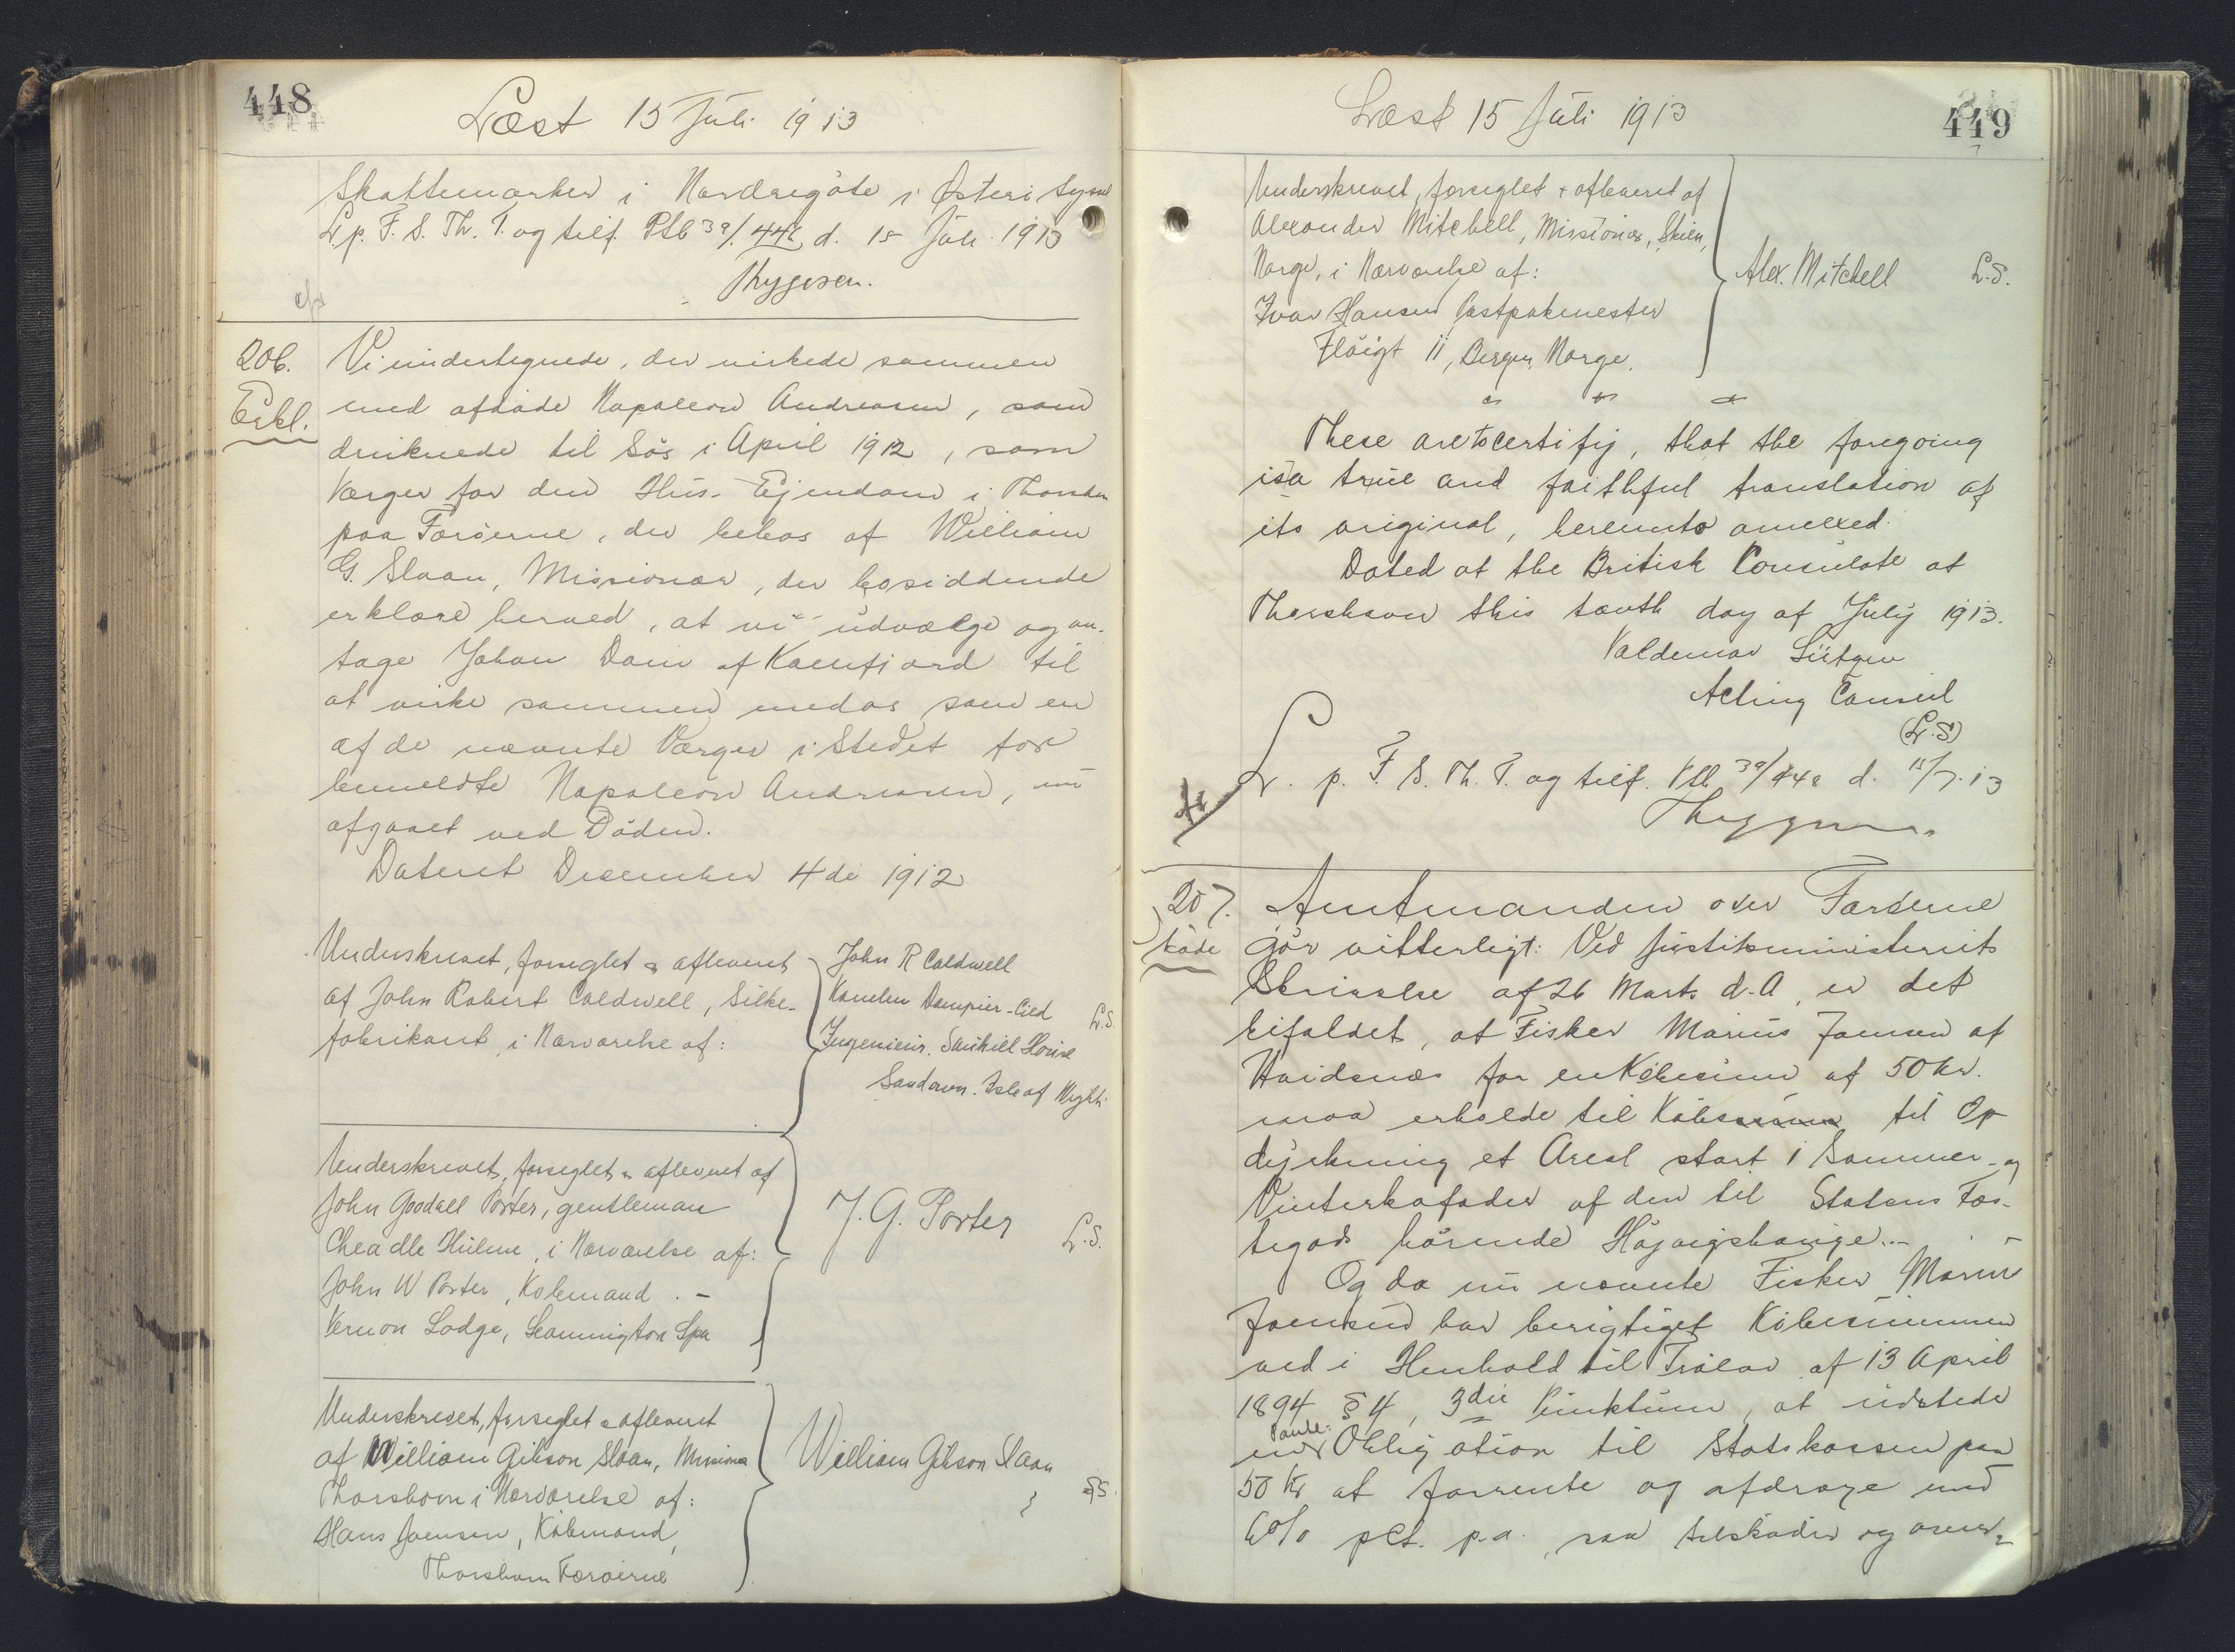 448
Læst 15 Juli 1913
Skattemarker i Nordregøte i Østeri Syssel
L. p. F. S. Th. T. og tilf. Ptb 39/446 d. 15 Juli 1913
Thygesen.
206.
Erkl.
Vi undertegnede, der virkede sammen
med afdøde Napoleon Andreasen, som
druknede til Søs i April 1912, som
Værger for den Hus-Ejendom i Thorshavn
paa Færøerne, der bebos af William
G. Sloan, Missionær, der bosiddende
erklære herved, at vi udvælge og an-
tage Johan Dam af Kaenfjord til
at virke sammen med os som en
af de nævnte Værger i Stedet for
bemeldte Napoleon Andreasen, nu
afgaaet ved Døden.
Dateret December 4de 1912
Underskrevet, forseglet & afleveret
af John Robert Caldwell, Silke-
fabrikant i Nærværelse af:
John R Caldwell
Dampier-
L.S.
Ingeniør. House
Sandown. Isle of Wight.
Underskrevet, forseglet & afleveret af
John Goodall Porter, gentleman
Cheadle Hulme, i Nærværelse af:
John W Porter, Købmand. -
Vernon Lodge, Leamington Spa
J. G. Porter
L.S.
Underskrevet, forseglet & afleveret
af William Gibson Sloan, Missionær
Thorshavn i Nærværelse af:
Hans Joensen, Købmand,
Thorshavn Færøerne
William Gibson Sloan
L.S.
449
Læst 15 Juli 1913
Underskrevet, forseglet & afleveret af
Alexander Mitchell, Missionær, Skien,
Norge, i Nærværelse af:
Ivar Hansen Postpakmester
Fløigt 11, Bergen, Norge.
Alex. Mitchell
L.S.
These are to certify, that the foregoing
is a true and faithful translation of
its original, hereunto annexed.
Dated at the British Consulate at
Thorshavn this tenth day of July 1913.
Valdemar Lützen
Acting Consul
(L.S)
L. p. F. S. Th. T. og tilf. Ptb 39/448 d. 15/7.13
Thygesen.
207.
Skøde
Amtmanden over Færøerne
gør vitterligt: Ved Justitsministeriets
Skrivelse af 26 Marts d.A. er det
bifaldet, at Fisker Marius Joensen af
Hvidenæs for en Købesum af 50 Kr.
maa erholde til Købesum til Op
dyrkning et Areal stort 1 Sommer- og
Vinterkofoder af den til Statens Fæs-
tegods hørende Højvigshauge. -
Og da nu nævnte Fisker Marius
Joensen har berigtiget Købesummen
ved i Henhold til Trælov af 13 April
1894 § 4, 3die Punktum, at udstede
Pante-
en Obligation til Statskassen paa
50 Kr at forrente og afdrage med
6% pCt. p.a., saa tilskøder og over-